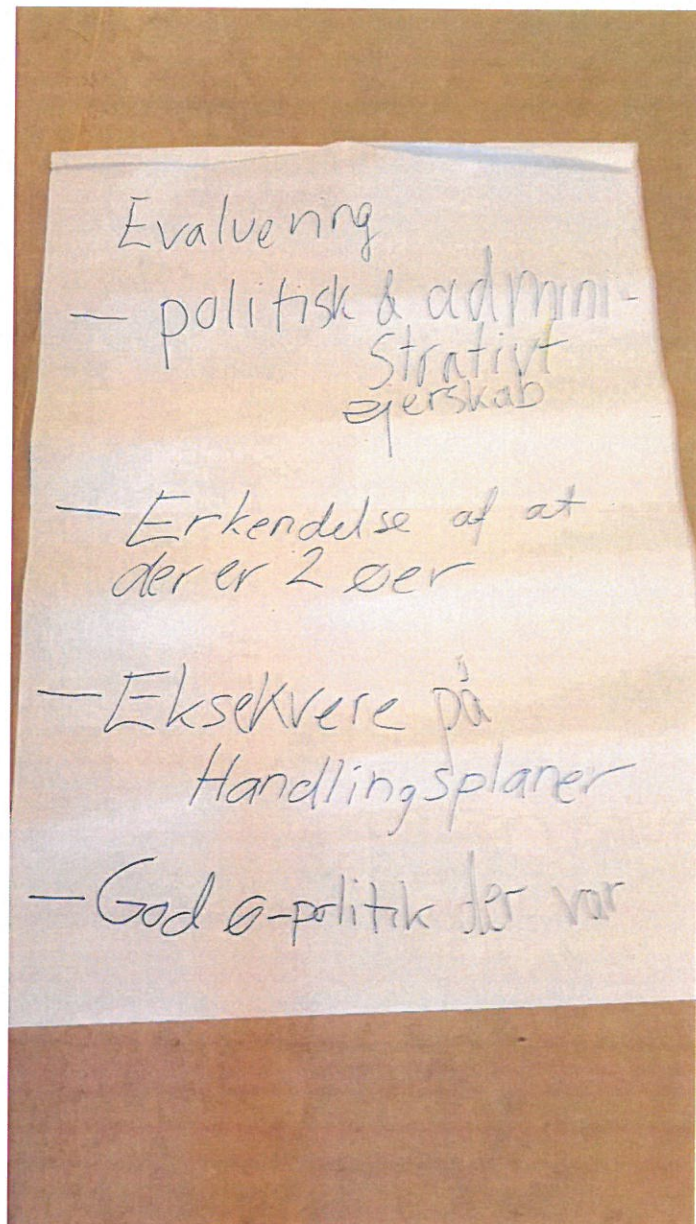 Evaluering
- politisk & admini-
strativt
ejerskab
- Erkendelse af at
der er 2 øer
- Eksekvere på
Handlingsplaner
- God ø-politik der var